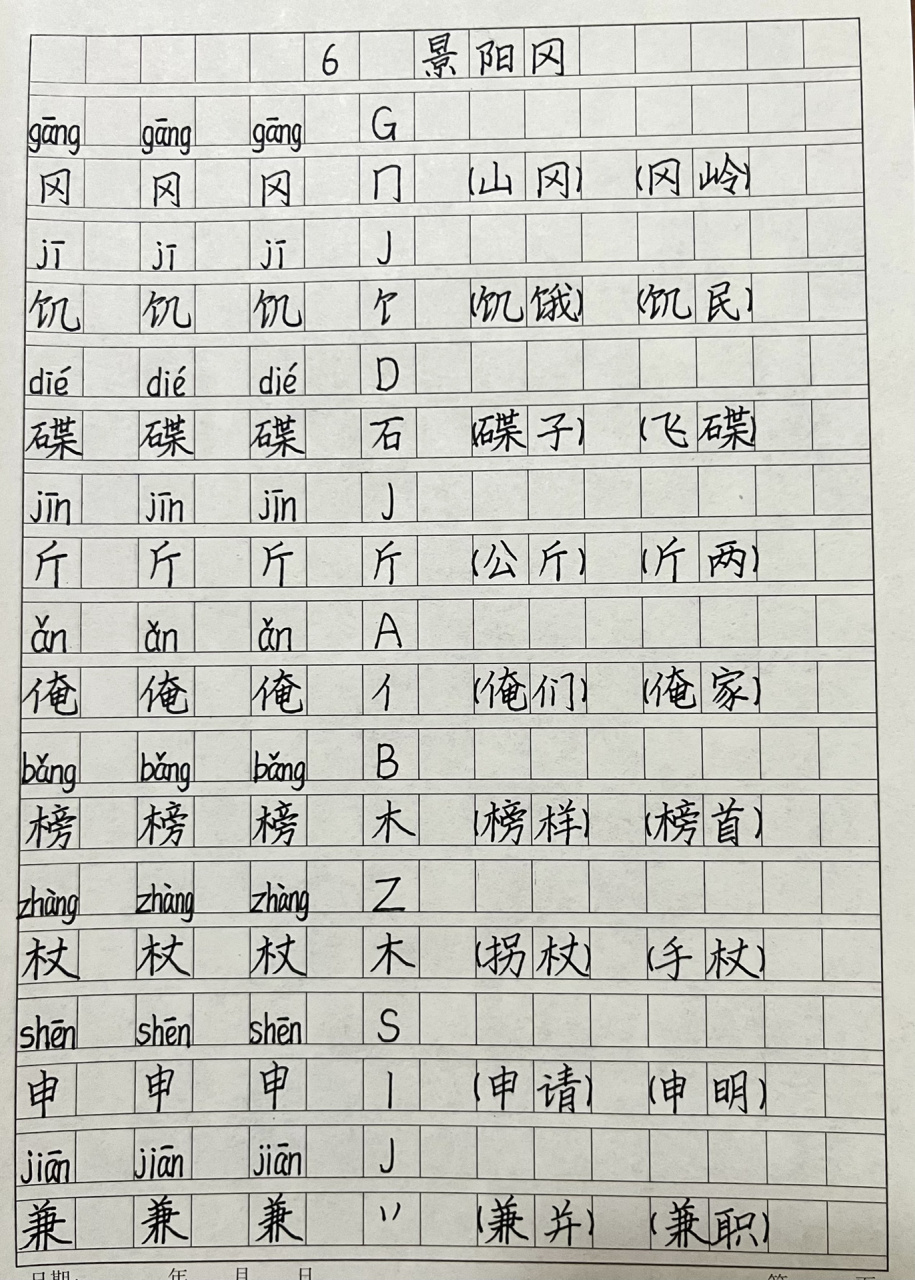 6 景阳冈
gāng gāng gāng G
冈 冈 冈 冂 (山冈) (冈岭)
jī jī jī J
饥 饥 饥 饣 (饥饿) (饥民)
dié dié dié D
碟 碟 碟 石 (碟子) (飞碟)
jīn jīn jīn J
斤 斤 斤 斤 (公斤) (斤两)
ǎn ǎn ǎn A
俺 俺 俺 亻 (俺们) (俺家)
bǎng bǎng bǎng B
榜 榜 榜 木 (榜样) (榜首)
zhàng zhàng zhàng Z
杖 杖 杖 木 (拐杖) (手杖)
shēn shēn shēn S
申 申 申 丨 (申请) (申明)
jiān jiān jiān J
兼 兼 兼 丷 (兼并) (兼职)
日期: 年 月 日